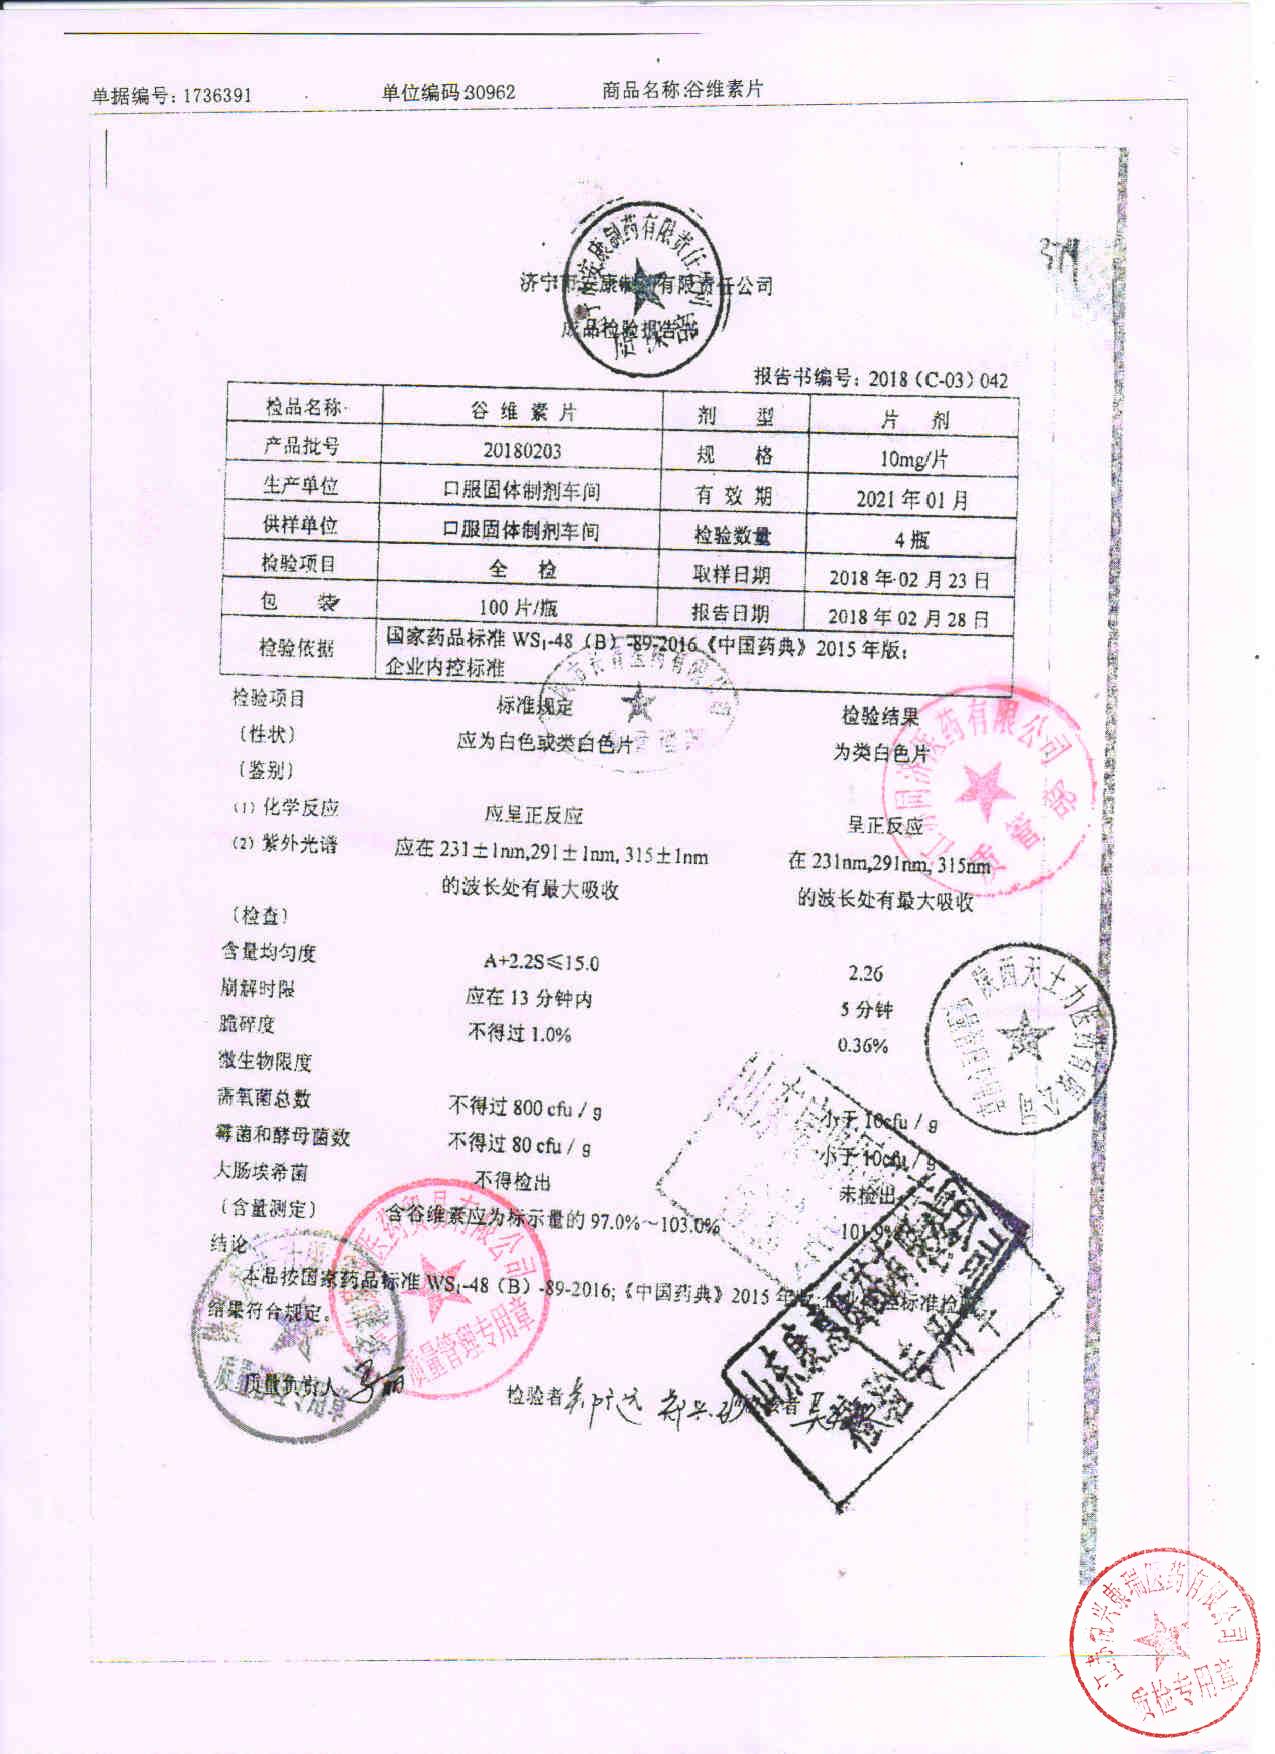 单据编号:1736391 单位编码:30962 商品名称:谷维素片
济宁市安康制药有限责任公司
成品检验报告书
报告书编号:2018(C-03)042
检品名称 谷维素片 剂型 片剂
产品批号 20180203 规格 10mg/片
生产单位 口服固体制剂车间 有效期 2021年01月
供样单位 口服固体制剂车间 检验数量 4瓶
检验项目 全检 取样日期 2018年02月23日
包装 100片/瓶 报告日期 2018年02月28日
检验依据 国家药品标准WS₁-48(B)-89-2016《中国药典》2015年版;
企业内控标准
检验项目 标准规定 检验结果
(性状) 应为白色或类白色片 为类白色片
(鉴别)
(1)化学反应 应呈正反应 呈正反应
(2)紫外光谱 应在231±1nm,291±1nm,315±1nm 在231nm,291nm,315nm
的波长处有最大吸收 的波长处有最大吸收
(检查)
含量均匀度 A+2.2S≤15.0 2.26
崩解时限 应在13分钟内 5分钟
脆碎度 不得过1.0% 0.36%
微生物限度
需氧菌总数 不得过800cfu/g 小于10cfu/g
霉菌和酵母菌数 不得过80cfu/g 小于10cfu/g
大肠埃希菌 不得检出 未检出
(含量测定) 含谷维素应为标示量的97.0%~103.0% 101.9%
结论
本品按国家药品标准WS₁-48(B)-89-2016;《中国药典》2015年版;企业内控标准检验
结果符合规定。
质量负责人 检验者
质量管理专用章
陕西天士力医药有限公司
质管部
质检专用章